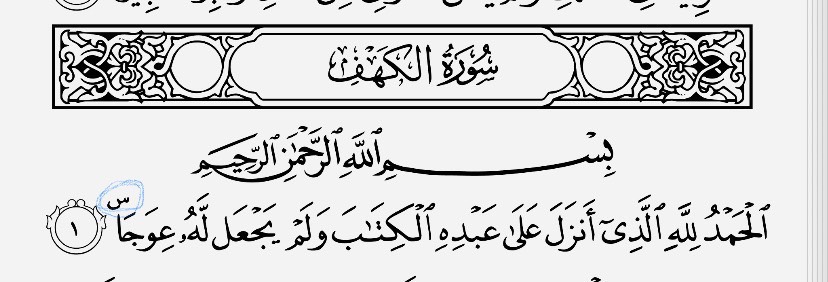 سُورَةُ الكَهْفِ
بِسْمِ ٱللَّهِ ٱلرَّحْمَٰنِ ٱلرَّحِيمِ
ٱلْحَمْدُ لِلَّهِ ٱلَّذِىٓ أَنزَلَ عَلَىٰ عَبْدِهِ ٱلْكِتَٰبَ وَلَمْ يَجْعَل لَّهُۥ عِوَجَاۜ ١